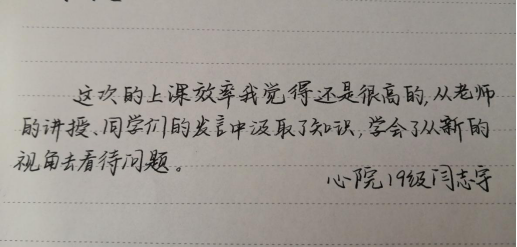 这次的上课效率我觉得还是很高的,从老师
的讲授、同学们的发言中汲取了知识,学会了从新的
视角去看待问题。
心院19级闫志宇